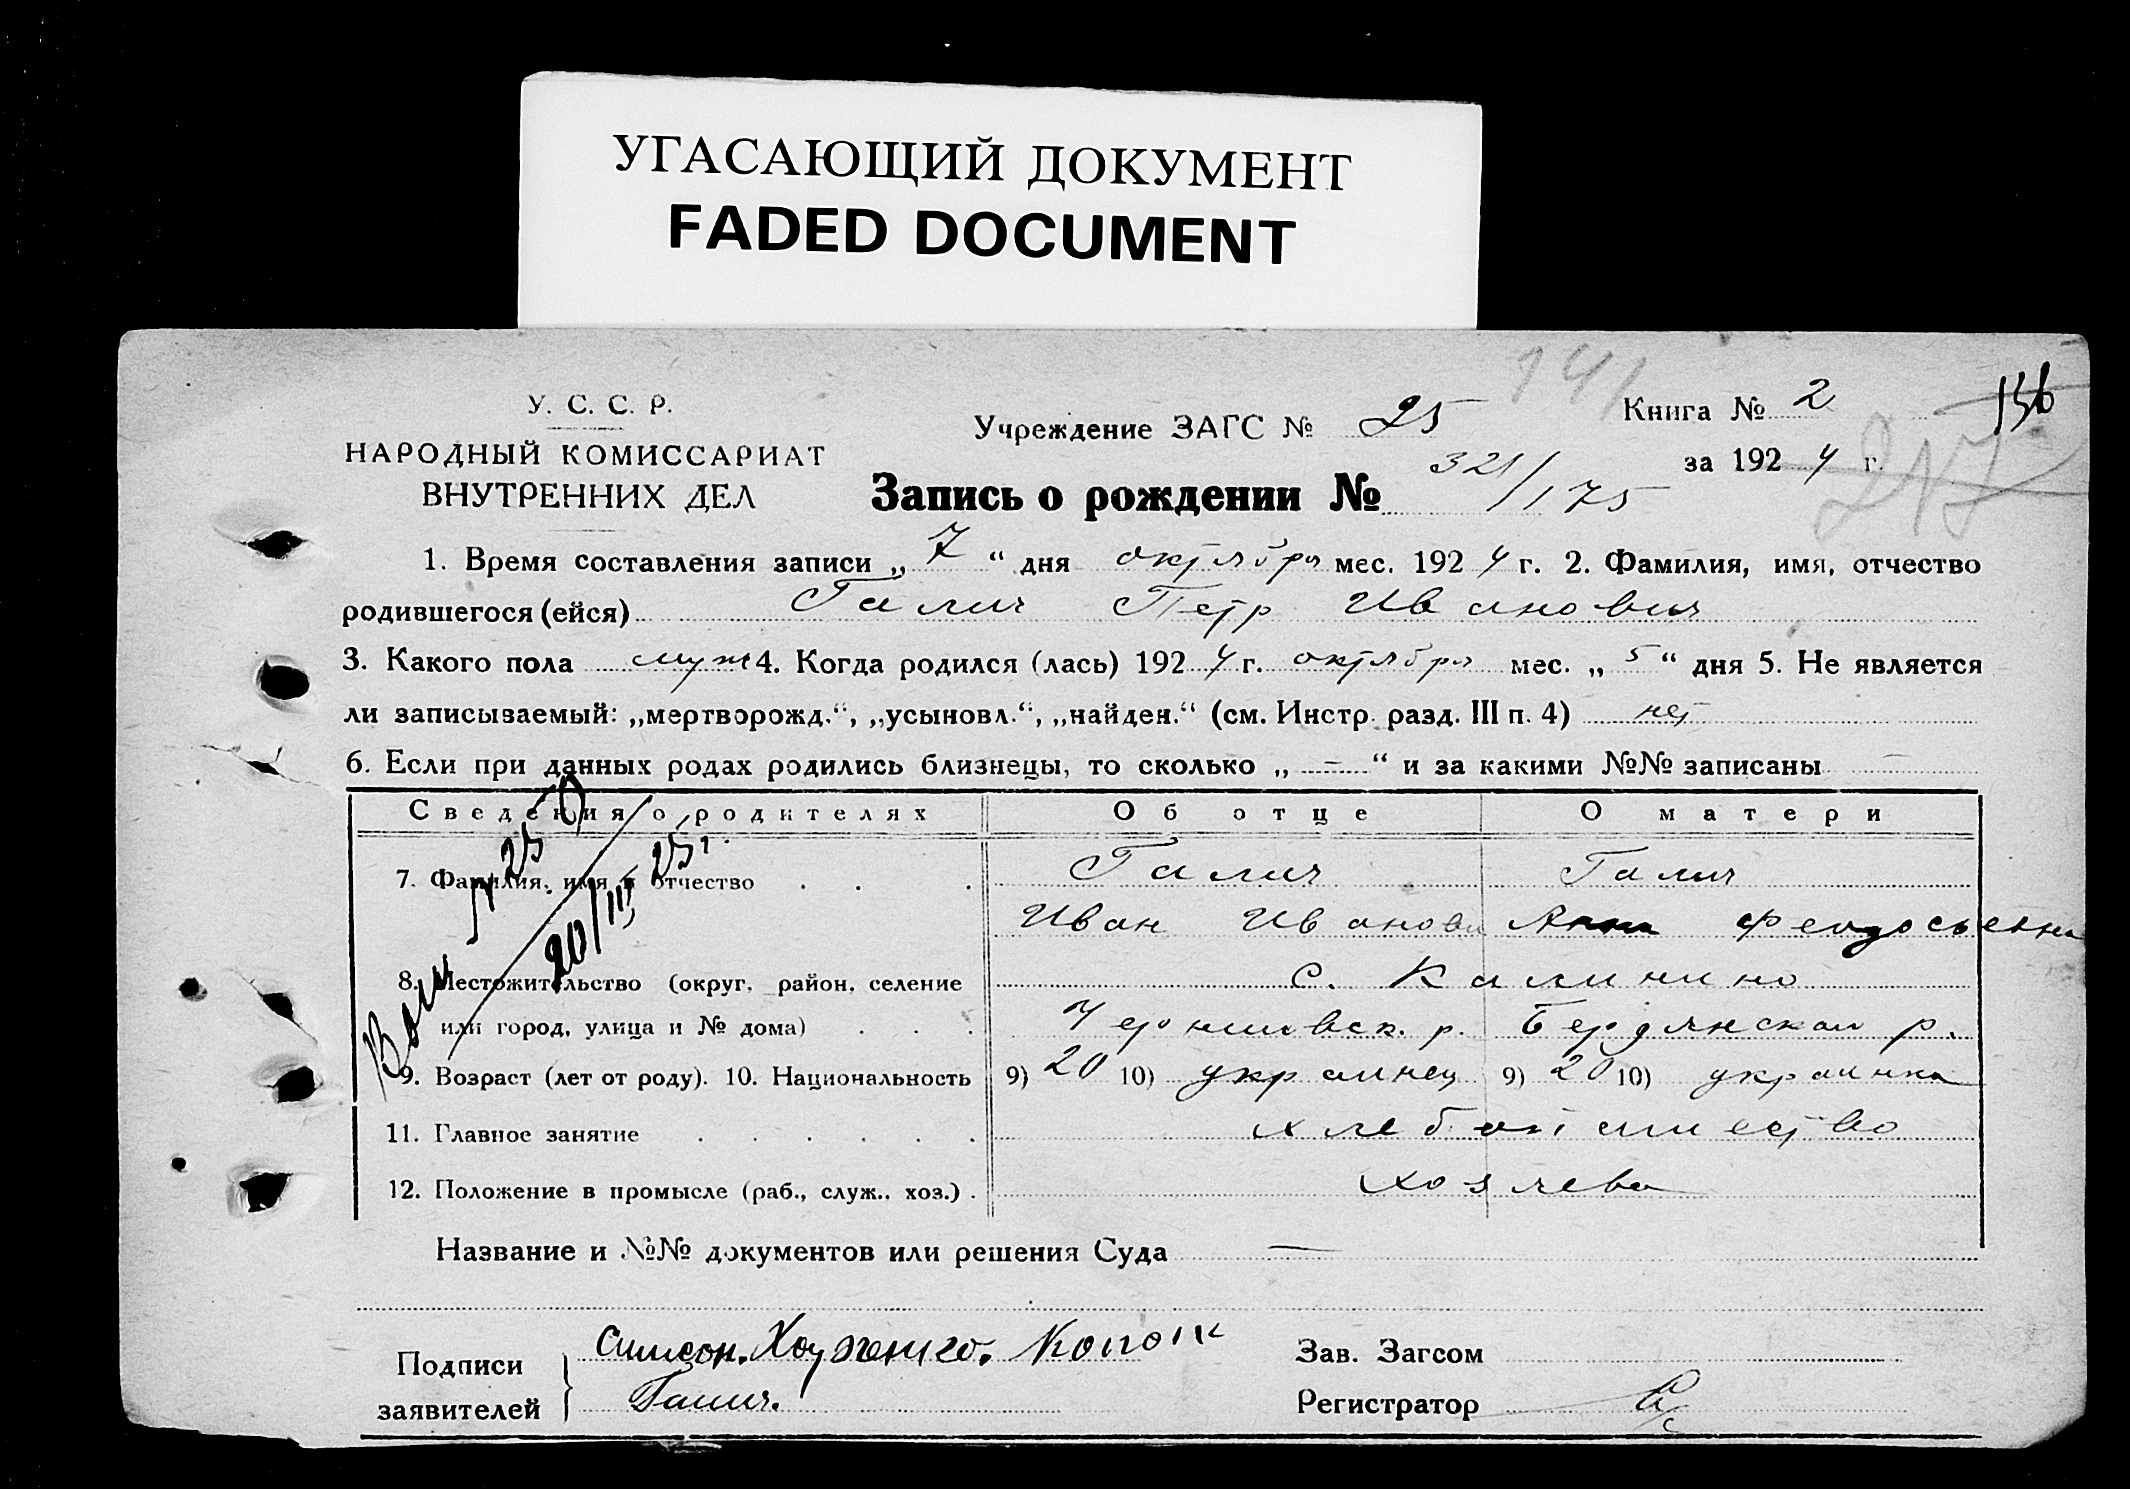 УГАСАЮЩИЙ ДОКУМЕНТ
FADED DOCUMENT
141
У. С. С. Р.
НАРОДНЫЙ КОМИССАРИАТ
ВНУТРЕННИХ ДЕЛ
Учреждение ЗАГС № 25
Книга № 2
156
за 1924 г.
217
Запись о рождении № 321/175
1. Время составления записи „ 7 “ дня октября мес. 1924 г. 2. Фамилия, имя, отчество
родившегося (ейся) Галич Петр Иванович
3. Какого пола муж 4. Когда родился (лась) 1924 г. октября мес. „ 5 “ дня 5. Не является
ли записываемый: „мертворожд.“, „усыновл.“, „найден.“ (см. Инстр. разд. III п. 4) нет
6. Если при данных родах родились близнецы, то сколько „ — “ и за какими №№ записаны —
Сведения о родителях Об отце О матери
7. Фамилия, имя и отчество . . . Галич Галич
Иван Иванов Анна Феодосьевна
8. Местожительство (округ, район, селение с. Калинино
или город, улица и № дома) . . . р. Бердянском р.
9. Возраст (лет от роду). 10. Национальность 9) 20 10) украинец 9) 20 10) украинка
11. Главное занятие . . . . . . хлебопашество
12. Положение в промысле (раб., служ., хоз.) . хозяева
20/III 25 г.
Название и №№ документов или решения Суда —
Подписи
заявителей
Галич.
Зав. Загсом
Регистратор